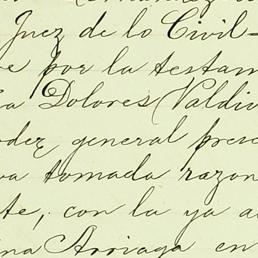 Juez de lo Civil
por la testam
Dolores Valdiv
oder general prese
tomada razon
te, con la ya a
na Arriaga en